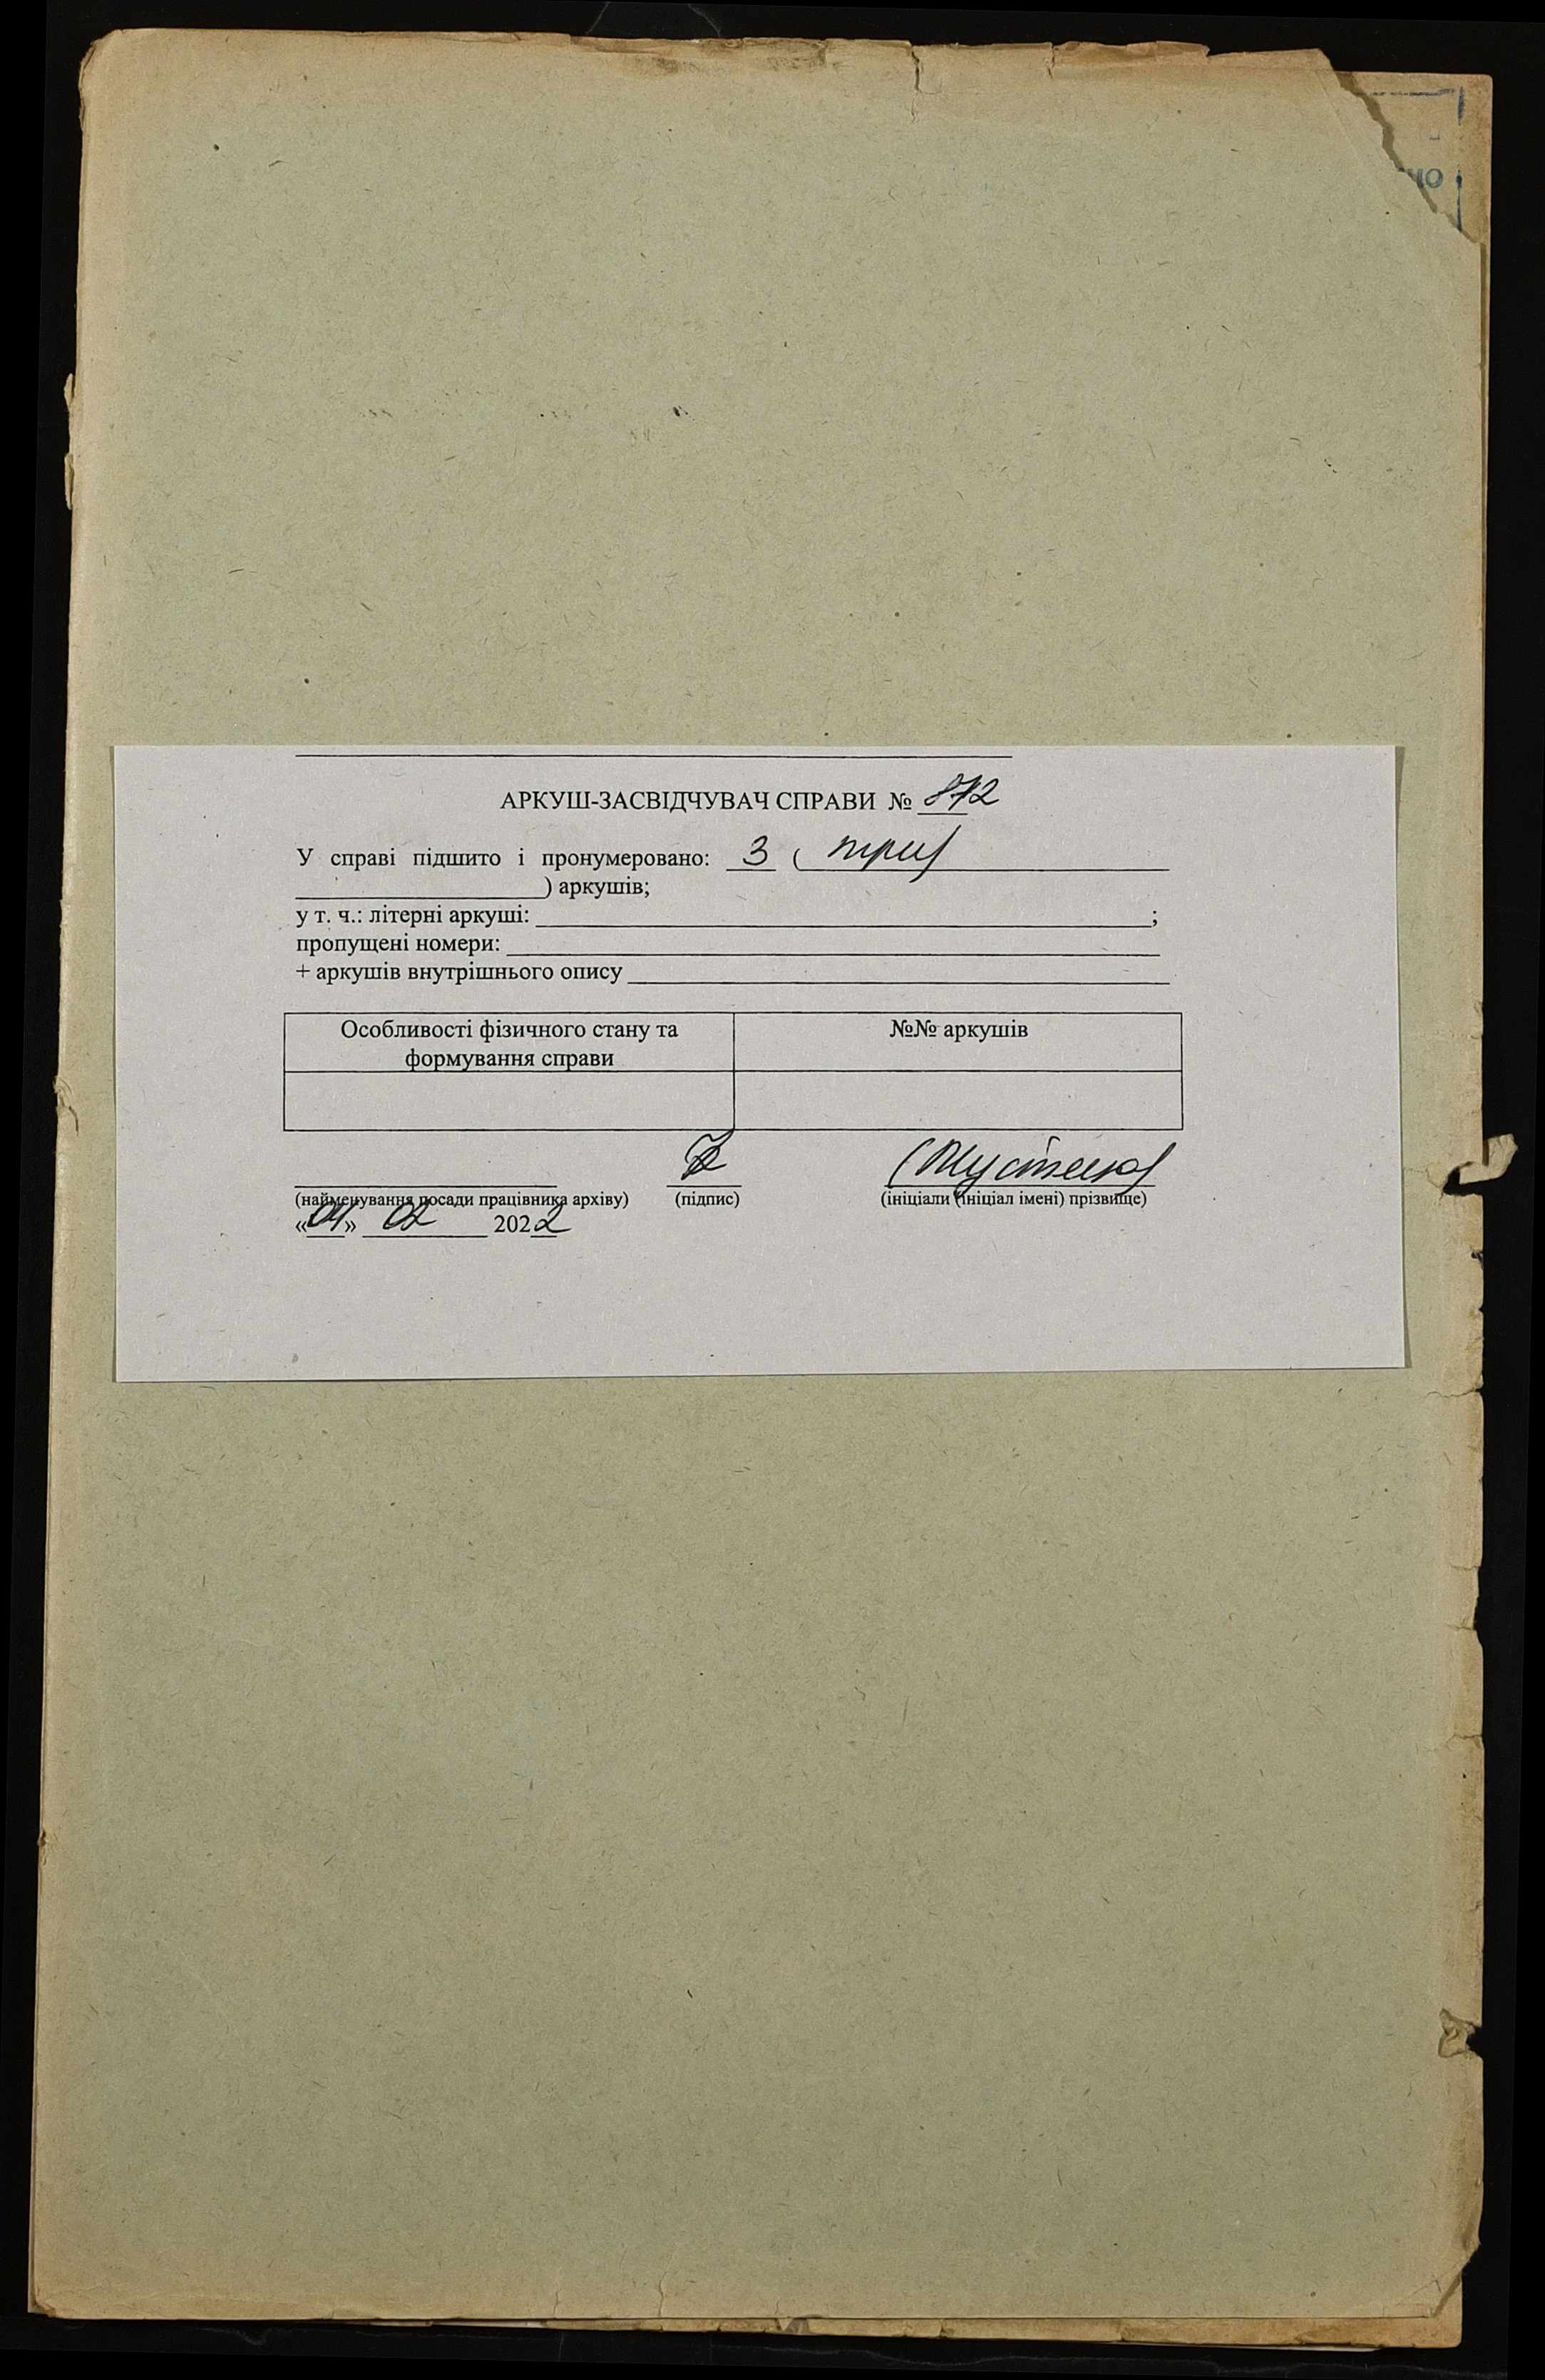 АРКУШ-ЗАСВІДЧУВАЧ СПРАВИ № 872
У справі підшито і пронумеровано: 3 ( три)
) аркушів;
у т. ч.: літерні аркуші: ;
пропущені номери:
+ аркушів внутрішнього опису
Особливості фізичного стану та
формування справи
№№ аркушів
(найменування посади працівника архіву) (підпис) (ініціали (ініціал імені) прізвище)
«01» 02 2022